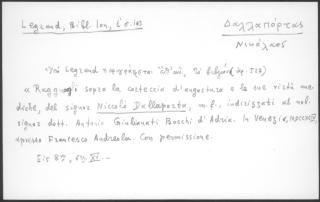 Legrand, Bibl. Ion., 6 σ. 103
Δαλλαπόρτας
Νικόλαος
Ὁ Legrand περιγράφεται ὑπ' ἀρ.
« Ragguagli sopra la corteccia d'angustura e le sue virtù me
diche, del signor Niccolò Dallaporta, m. f., indirizzati al nob.
signor dott. Antonio Giulianati Bocchi d'Adria. In Venezia,
appresso Francesco Andreola. Con permissione.
Εἰς 8ον, σσ. XI. --